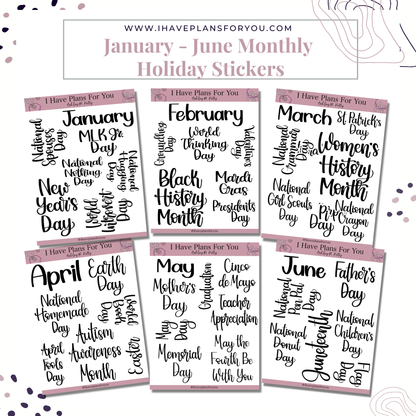 WWW.IHAVEPLANSFORYOU.COM
January - June Monthly
Holiday Stickers
I Have Plans For You
January
National
Spouses
Day
MLK Jr.
Day
National
Nothing
Day
National
Hugging
Day
New
Year's
Day
World
Introvert
Day
I Have Plans For You
February
Groundhog
Day
World
Thinking
Day
Valentines
Day
Black
History
Month
Mardi
Gras
Presidents
Day
I Have Plans For You
March
St Patrick's
Day
National
Grammar
Day
Women's
History
Month
National
Girl Scouts
Day
Pi Day
National
Crayon
Day
I Have Plans For You
April
Earth
Day
National
Homemade
Day
World
Book
Day
April
Fools
Day
Autism
Awareness
Month
Easter
I Have Plans For You
May
Mother's
Day
Graduation
Cinco
de Mayo
Teacher
Appreciation
May
Day
Memorial
Day
May the
Fourth Be
With You
I Have Plans For You
June
Father's
Day
National
Pen Pal
Day
National
Donut
Day
Juneteenth
National
Children's
Day
Flag
Day